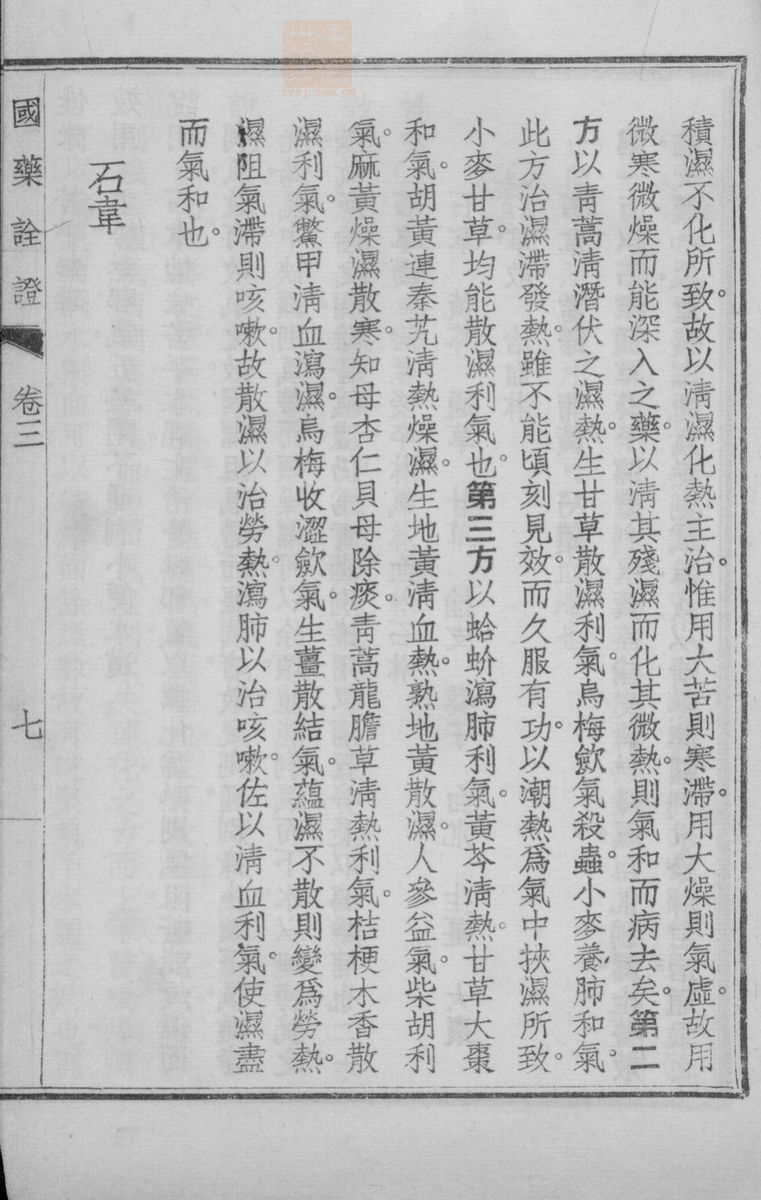 積濕不化所致。故以清濕化熱主治。惟用大苦則寒滯。用大燥則氣虛。故用
微寒微燥而能深入之藥。以清其殘濕而化其微熱。則氣和而病去矣。第二
方以青蒿清潛伏之濕熱。生甘草散濕利氣。烏梅歛氣殺蟲。小麥養肺和氣。
此方治濕滯發熱。雖不能頃刻見效。而久服有功。以潮熱爲氣中挾濕所致。
小麥甘草。均能散濕利氣也。第三方以蛤蚧瀉肺利氣。黃芩清熱。甘草大棗
和氣。胡黃連秦艽清熱燥濕。生地黃清血熱。熟地黃散濕。人參益氣。柴胡利
氣。麻黃燥濕散寒。知母杏仁貝母除痰。青蒿龍膽草清熱利氣。桔梗木香散
濕利氣。鱉甲清血瀉濕。烏梅收澀歛氣。生薑散結氣。蘊濕不散則變爲勞熱。
濕阻氣滯則咳嗽。故散濕以治勞熱。瀉肺以治咳嗽。佐以清血利氣。使濕盡
而氣和也。
石韋
國藥詮證
卷三
七